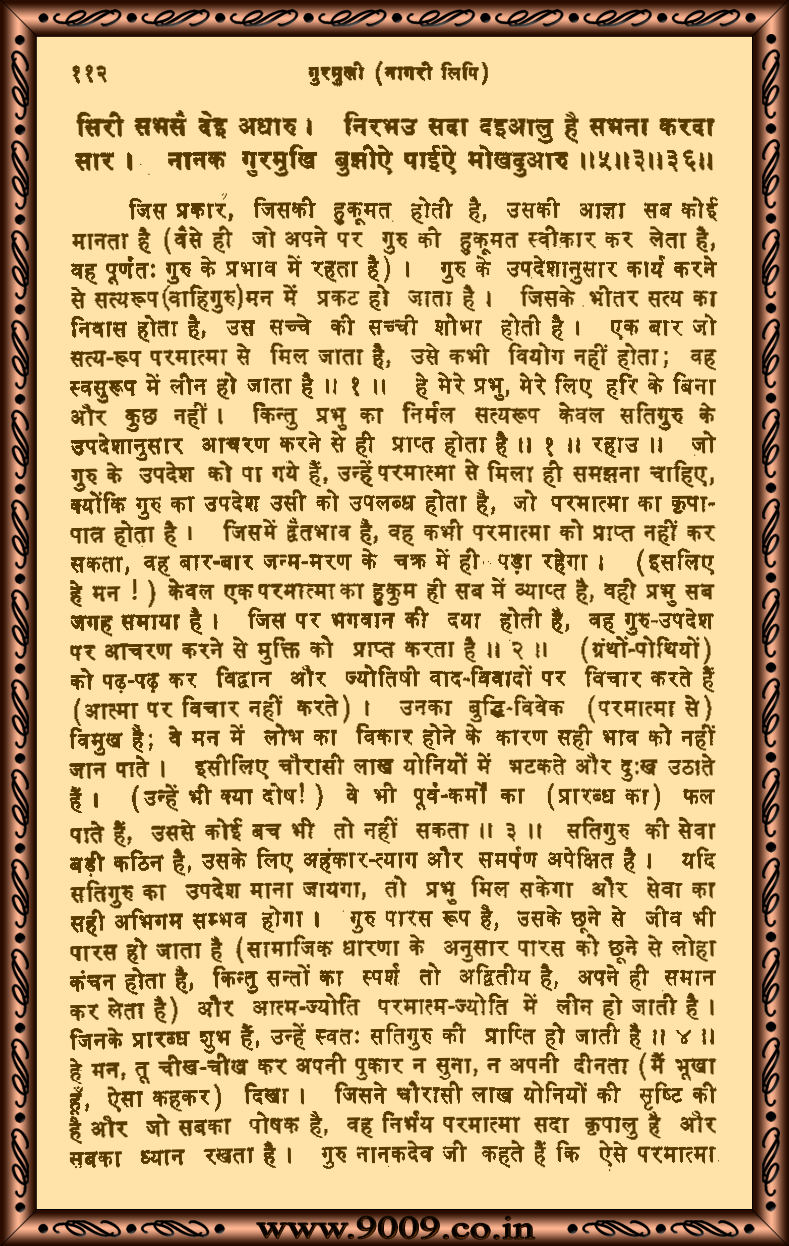 ११२ गुरमुखी (नागरी लिपि)
सिरी सभसै देइ अधारु । निरभउ सदा दइआलु है सभना करदा
सार । नानक गुरमुखि बुझीऐ पाईऐ मोखदुआरु ॥५॥३॥३६॥
जिस प्रकार, जिसकी हुकूमत होती है, उसकी आज्ञा सब कोई
मानता है (वैसे ही जो अपने पर गुरु की हुकूमत स्वीकार कर लेता है,
वह पूर्णतः गुरु के प्रभाव में रहता है) । गुरु के उपदेशानुसार कार्य करने
से सत्यरूप(वाहिगुरु)मन में प्रकट हो जाता है । जिसके भीतर सत्य का
निवास होता है, उस सच्चे की सच्ची शोभा होती है । एक बार जो
सत्य-रूप परमात्मा से मिल जाता है, उसे कभी वियोग नहीं होता; वह
स्वसुरूप में लीन हो जाता है ॥ १ ॥ हे मेरे प्रभु, मेरे लिए हरि के बिना
और कुछ नहीं । किन्तु प्रभु का निर्मल सत्यरूप केवल सतिगुरु के
उपदेशानुसार आचरण करने से ही प्राप्त होता है ॥ १ ॥ रहाउ ॥ जो
गुरु के उपदेश को पा गये हैं, उन्हें परमात्मा से मिला ही समझना चाहिए,
क्योंकि गुरु का उपदेश उसी को उपलब्ध होता है, जो परमात्मा का कृपा-
पात्र होता है । जिसमें द्वैतभाव है, वह कभी परमात्मा को प्राप्त नहीं कर
सकता, वह बार-बार जन्म-मरण के चक्र में ही पड़ा रहेगा । (इसलिए
हे मन ! ) केवल एक परमात्मा का हुकुम ही सब में व्याप्त है, वही प्रभु सब
जगह समाया है । जिस पर भगवान की दया होती है, वह गुरु-उपदेश
पर आचरण करने से मुक्ति को प्राप्त करता है ॥ २ ॥ (ग्रंथों-पोथियों)
को पढ़-पढ़ कर विद्वान और ज्योतिषी वाद-विवादों पर विचार करते हैं
(आत्मा पर विचार नहीं करते) । उनका बुद्धि-विवेक (परमात्मा से)
विमुख है; वे मन में लोभ का विकार होने के कारण सही भाव को नहीं
जान पाते । इसीलिए चौरासी लाख योनियों में भटकते और दुःख उठाते
हैं । (उन्हें भी क्या दोष! ) वे भी पूर्व-कर्मों का (प्रारब्ध का) फल
पाते हैं, उससे कोई बच भी तो नहीं सकता ॥ ३ ॥ सतिगुरु की सेवा
बड़ी कठिन है, उसके लिए अहंकार-त्याग और समर्पण अपेक्षित है । यदि
सतिगुरु का उपदेश माना जायगा, तो प्रभु मिल सकेगा और सेवा का
सही अभिगम सम्भव होगा । गुरु पारस रूप है, उसके छूने से जीव भी
पारस हो जाता है (सामाजिक धारणा के अनुसार पारस को छूने से लोहा
कंचन होता है, किन्तु सन्तों का स्पर्श तो अद्वितीय है, अपने ही समान
कर लेता है) और आत्म-ज्योति परमात्म-ज्योति में लीन हो जाती है ।
जिनके प्रारब्ध शुभ हैं, उन्हें स्वतः सतिगुरु की प्राप्ति हो जाती है ॥ ४ ॥
हे मन, तू चीख-चीख कर अपनी पुकार न सुना, न अपनी दीनता (मैं भूखा
हूँ, ऐसा कहकर) दिखा । जिसने चौरासी लाख योनियों की सृष्टि की
है और जो सबका पोषक है, वह निर्भय परमात्मा सदा कृपालु है और
सबका ध्यान रखता है । गुरु नानकदेव जी कहते हैं कि ऐसे परमात्मा
www.9009.co.in